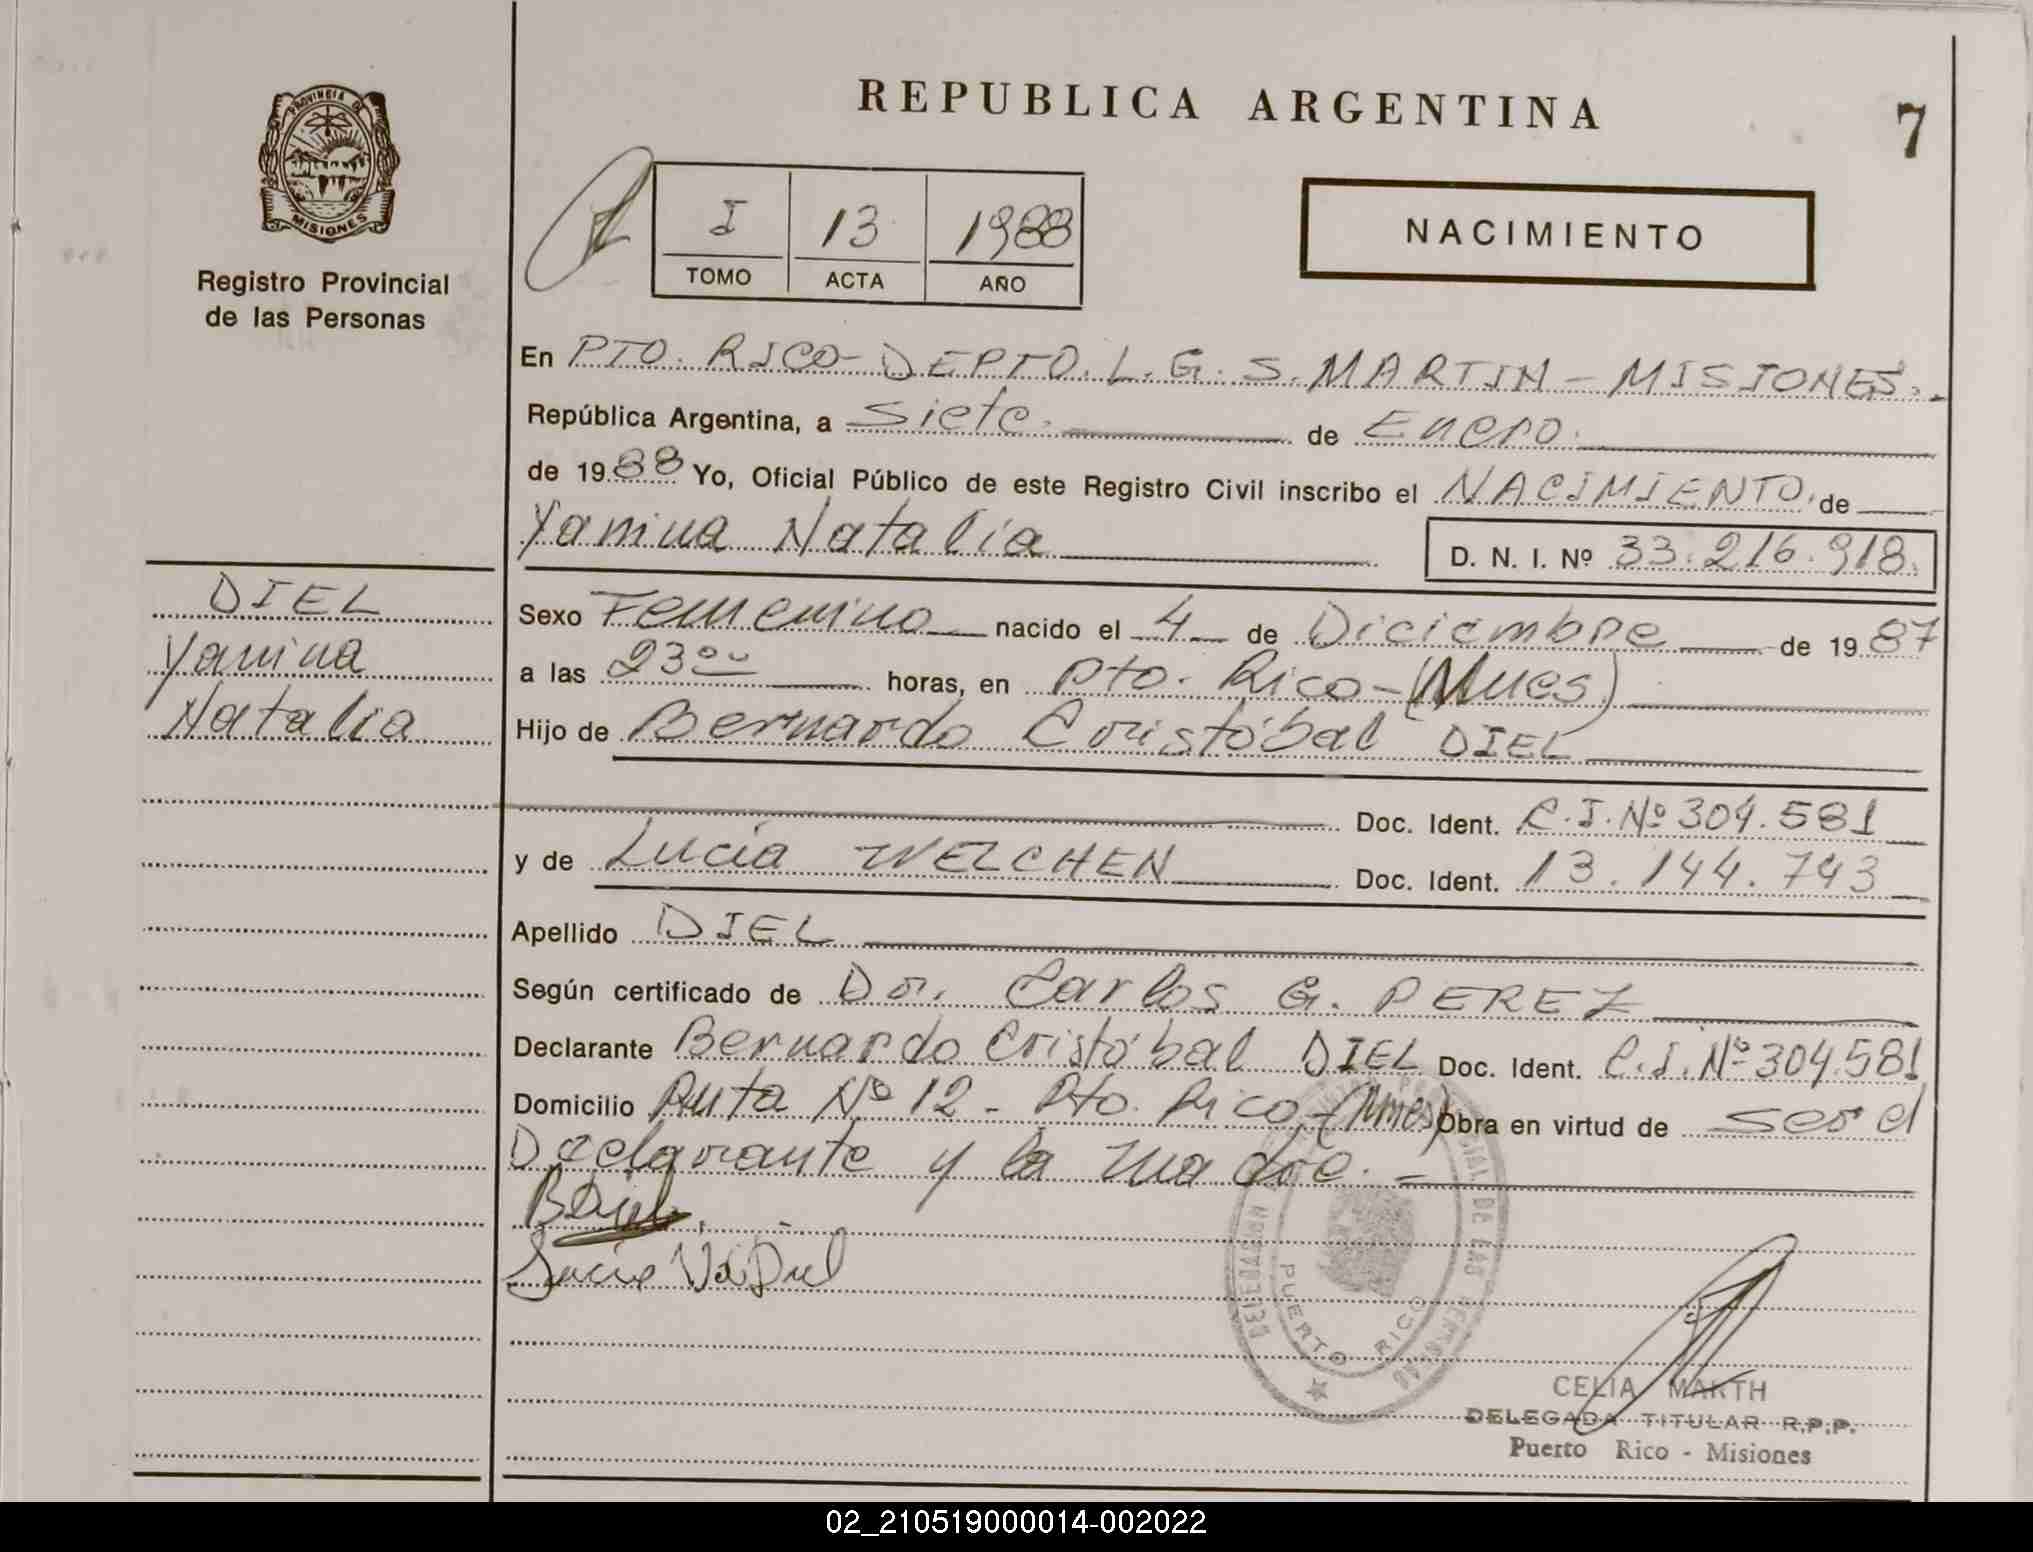 REPUBLICA ARGENTINA
7
PROVINCIA D
MISIONES
Registro Provincial
de las Personas
I 13 1988
TOMO ACTA AÑO
NACIMIENTO
En PTO. RICO - DEPTO. L. G. S. MARTIN - MISIONES.-
República Argentina, a Siete. de Enero.
de 1988 Yo, Oficial Público de este Registro Civil inscribo el NACIMIENTO. de
Yanina Natalia
D. N. I. Nº 33.216.918.
DIEL
Yanina
Natalia
Sexo Femenino nacido el 4 de Diciembre de 1987
a las 23 00 horas, en Pto. Rico - (Mnes)
Hijo de Bernardo Cristóbal DIEL
Doc. Ident. C.I. Nº 304.581
y de Lucía WELCHEN Doc. Ident. 13.144.743
Apellido DIEL
Según certificado de Dr. Carlos G. PEREZ
Declarante Bernardo Cristóbal DIEL Doc. Ident. C.I. Nº 304.581
Domicilio Ruta Nº 12 - Pto. Rico - (Mnes) Obra en virtud de ser el
Declarante y la madre. -
B Diel
Lucia W. Diel
DELEGACION PROVINCIAL DE LAS PERSONAS
PUERTO RICO
CELIA MARTH
DELEGADA TITULAR R.P.P.
Puerto Rico - Misiones
02_210519000014-002022